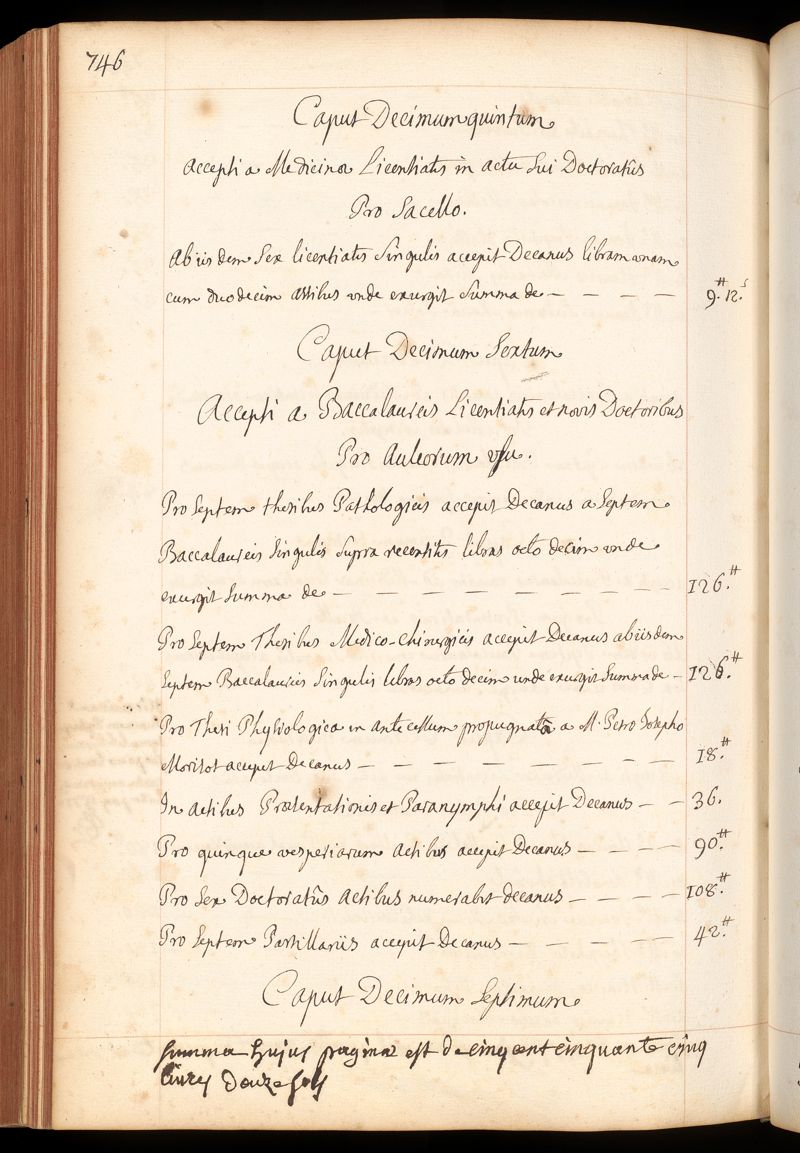 746
Caput Decimum quintum
Accepti a Medicinæ Licentiatis in actu Sui Doctoratûs
Pro Sacello.
Ab iis dem Sex licentiatis Singulis accepit Decanus libram unam
cum duodecim assibus unde exurgit Summa de — — — — 9.# 12.s
Caput Decimum Sextum
Accepti a Baccalaureis Licentiatis et novis Doctoribus
Pro Auleorum usu.
Pro Septem thesibus Pathologicis accepit Decanus a Septem
Baccalaureis Singulis Supra recentitis libras octo decim unde
exurgit Summa de — — — — — — — — — 126.#
Pro Septem Thesibus Medico-chirurgicis accepit Decanus ab iisdem
Septem Baccalaureis Singulis libras octo decim unde exurgit Summa de — 126.#
Pro Thesi Physiologica in ante cessum propugnatâ a M. Petro Josepho
Morisot accepit Decanus — — — — — — — — 18.#
In actibus Præsentationis et Paranymphi accepit Decanus — — 36.
Pro quinque vesperiarum actibus accepit Decanus — — — — 90.#
Pro Sex Doctoratûs Actibus numerabit decanus — — — — 108.#
Pro Septem Pastillariis accepit Decanus — — — — — 42.#
Caput Decimum Septimum
Summa hujus paginæ est de cinq cent cinquante cinq
livres douze sols